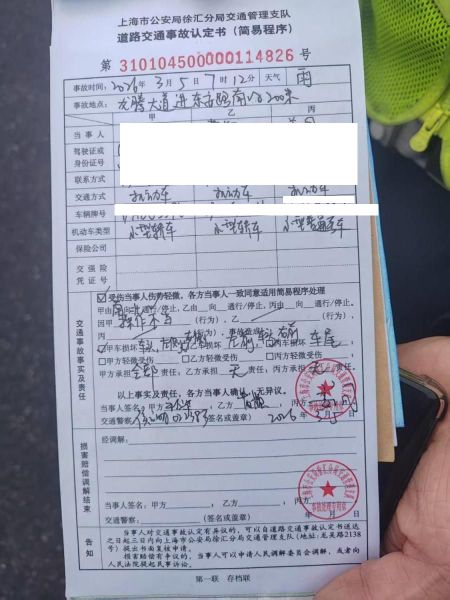 上海市公安局徐汇分局交通管理支队
道路交通事故认定书（简易程序）
№ 310104500000114826
事故时间：2026年3月5日7时12分 天气 雨
事故地点：龙腾大道进东安路南约200米
甲 乙 丙
当事人
驾驶证或身份证号
联系方式
交通方式 机动车 机动车 机动车
车辆牌号
机动车类型 小型轿车 小型轿车 小型普通客车
保险公司
交强险凭证号
交通事故事实及责任
受伤当事人伤势轻微，各方当事人一致同意适用简易程序处理
甲由南向北通行/停止，乙由 向 通行/停止，丙由 向 通行/停止。
因甲 操作不当 （行为），乙 （行为），
丙 （行为），事故造成：
甲车损坏 车头 乙车损坏 丙车损坏 车尾
甲方轻微受伤 乙方轻微受伤 丙方轻微受伤
甲方承担 全部 责任，乙方承担 无 责任，丙方承担 无 责任。
以上事实及责任，各方当事人确认，无异议。
当事人签名：甲方 乙方 丙方
交通警察： 2026年3月 日
损害赔偿调解结束
经调解：
当事人签名：甲方 ，乙方 ，丙方
交通警察： （签名或盖章） 年 月 日
告知
当事人对交通事故认定有异议的，可以自道路交通事故认定书送达
之日起三日内向上海市公安局徐汇分局交通管理支队（地址：龙吴路2138
号）提出书面复核申请。
损害赔偿有争议的，当事人可以申请人民调解委员会调解，或者向
人民法院提起民事诉讼。
第一联 存档联